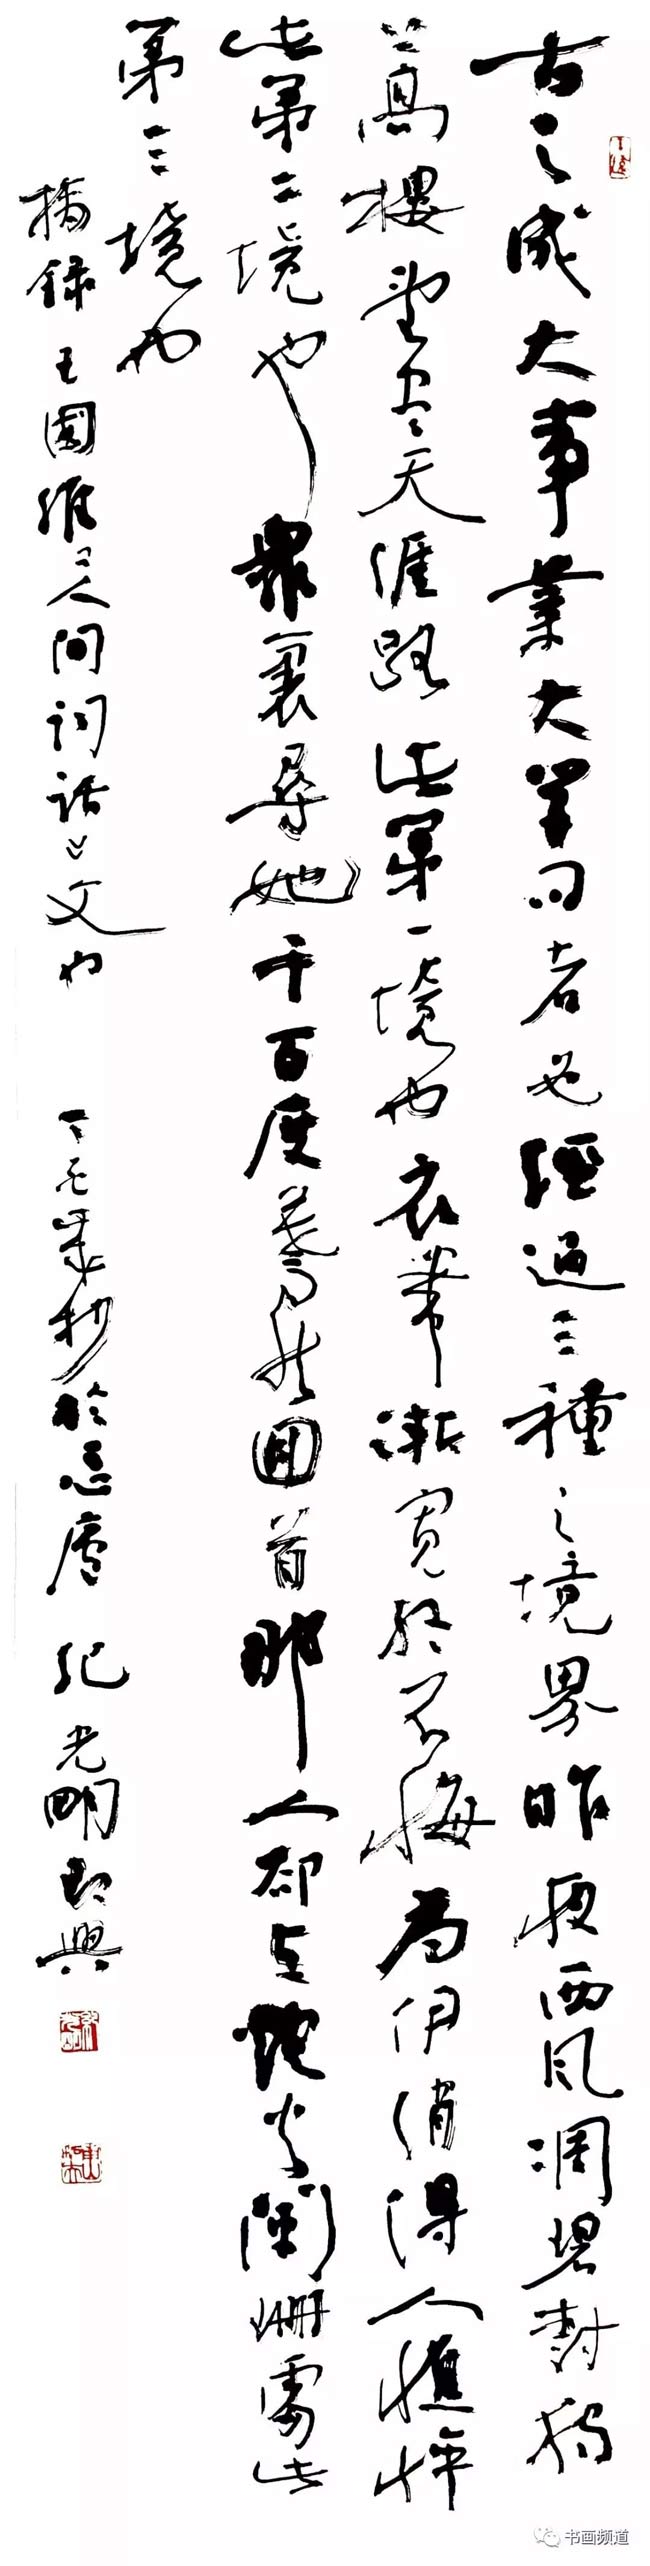 古之成大事業大学问者必經過三種之境界昨夜西风凋碧树独
上高樓望尽天涯路此第一境也衣带漸宽終不悔为伊消得人憔悴
此第二境也眾裏尋她千百度驀然回首那人却在燈火闌珊處此
第三境也
摘録王國維《人间词话》文也 丁酉歲杪於廬 纪光明即興
书画频道